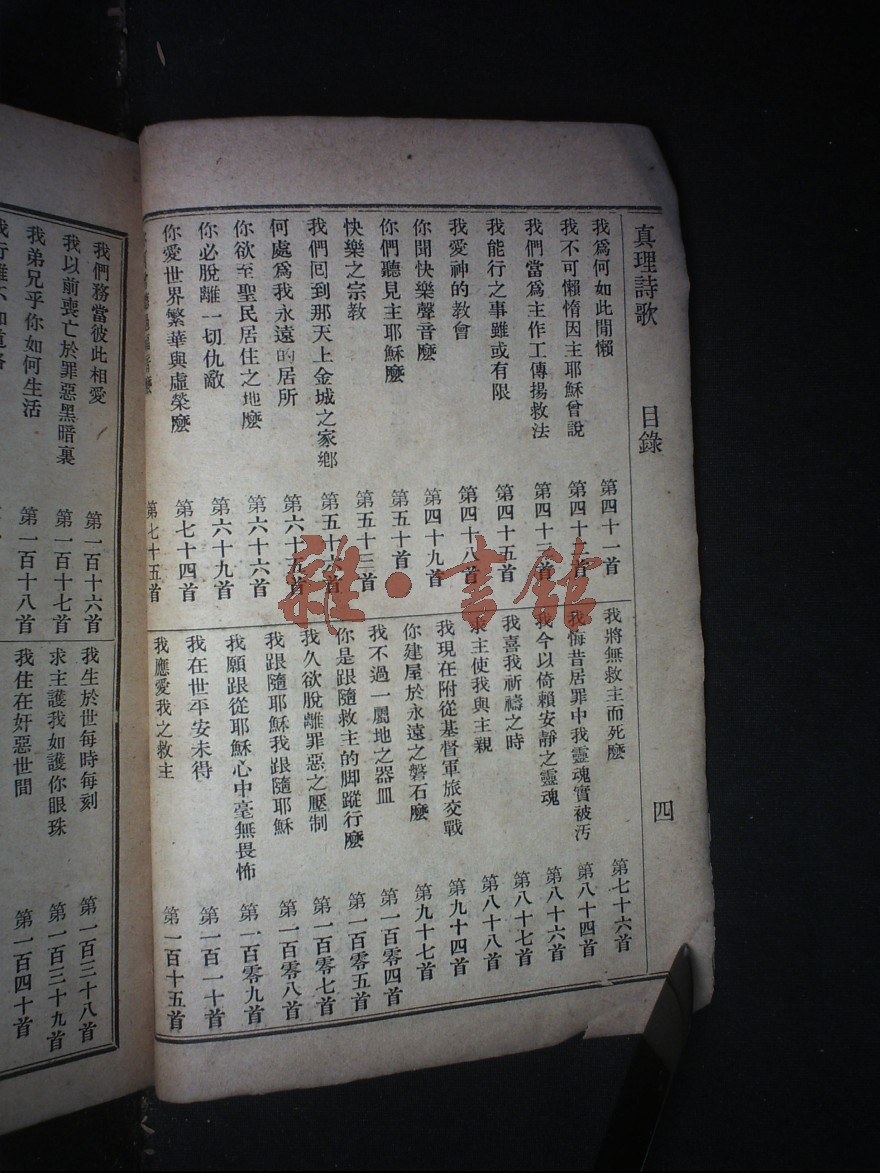 真理詩歌 目錄 四
我爲何如此閒懶 第四十一首
我不可懶惰因主耶穌曾說 第四十首
我們當爲主作工傳揚救法 第四十二首
我能行之事雖或有限 第四十五首
我愛神的教會 第四十八首
你聞快樂聲音麼 第四十九首
你們聽見主耶穌麼 第五十首
快樂之宗教 第五十三首
我們回到那天上金城之家鄉 第五十六首
何處爲我永遠的居所 第六十五首
你欲至聖民居住之地麼 第六十六首
你必脫離一切仇敵 第六十九首
你愛世界繁華與虛榮麼 第七十四首
第七十五首
我將無救主而死麼 第七十六首
我悔昔居罪中我靈魂實被汚 第八十四首
我今以倚賴安靜之靈魂 第八十六首
我喜我祈禱之時 第八十七首
求主使我與主親 第八十八首
我現在附從基督軍旅交戰 第九十四首
你建屋於永遠之磐石麼 第九十七首
我不過一屬地之器皿 第一百零四首
你是跟隨救主的脚蹤行麼 第一百零五首
我久欲脫離罪惡之壓制 第一百零七首
我跟隨耶穌我跟隨耶穌 第一百零八首
我願跟從耶穌心中毫無畏怖 第一百零九首
我在世平安未得 第一百一十首
我應愛我之救主 第一百十五首
我們務當彼此相愛 第一百十六首
我以前喪亡於罪惡黑暗裏 第一百十七首
我弟兄乎你如何生活 第一百十八首
我生於世每時每刻 第一百三十八首
求主護我如護你眼珠 第一百三十九首
我住在奸惡世間 第一百四十首
雜·書館